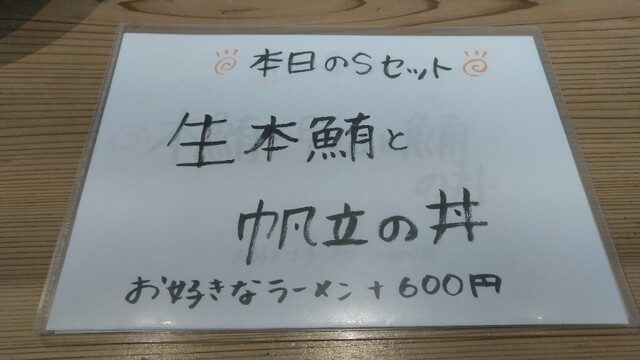 本日のSセット
生本鮪と
帆立の丼
お好きなラーメン+600円